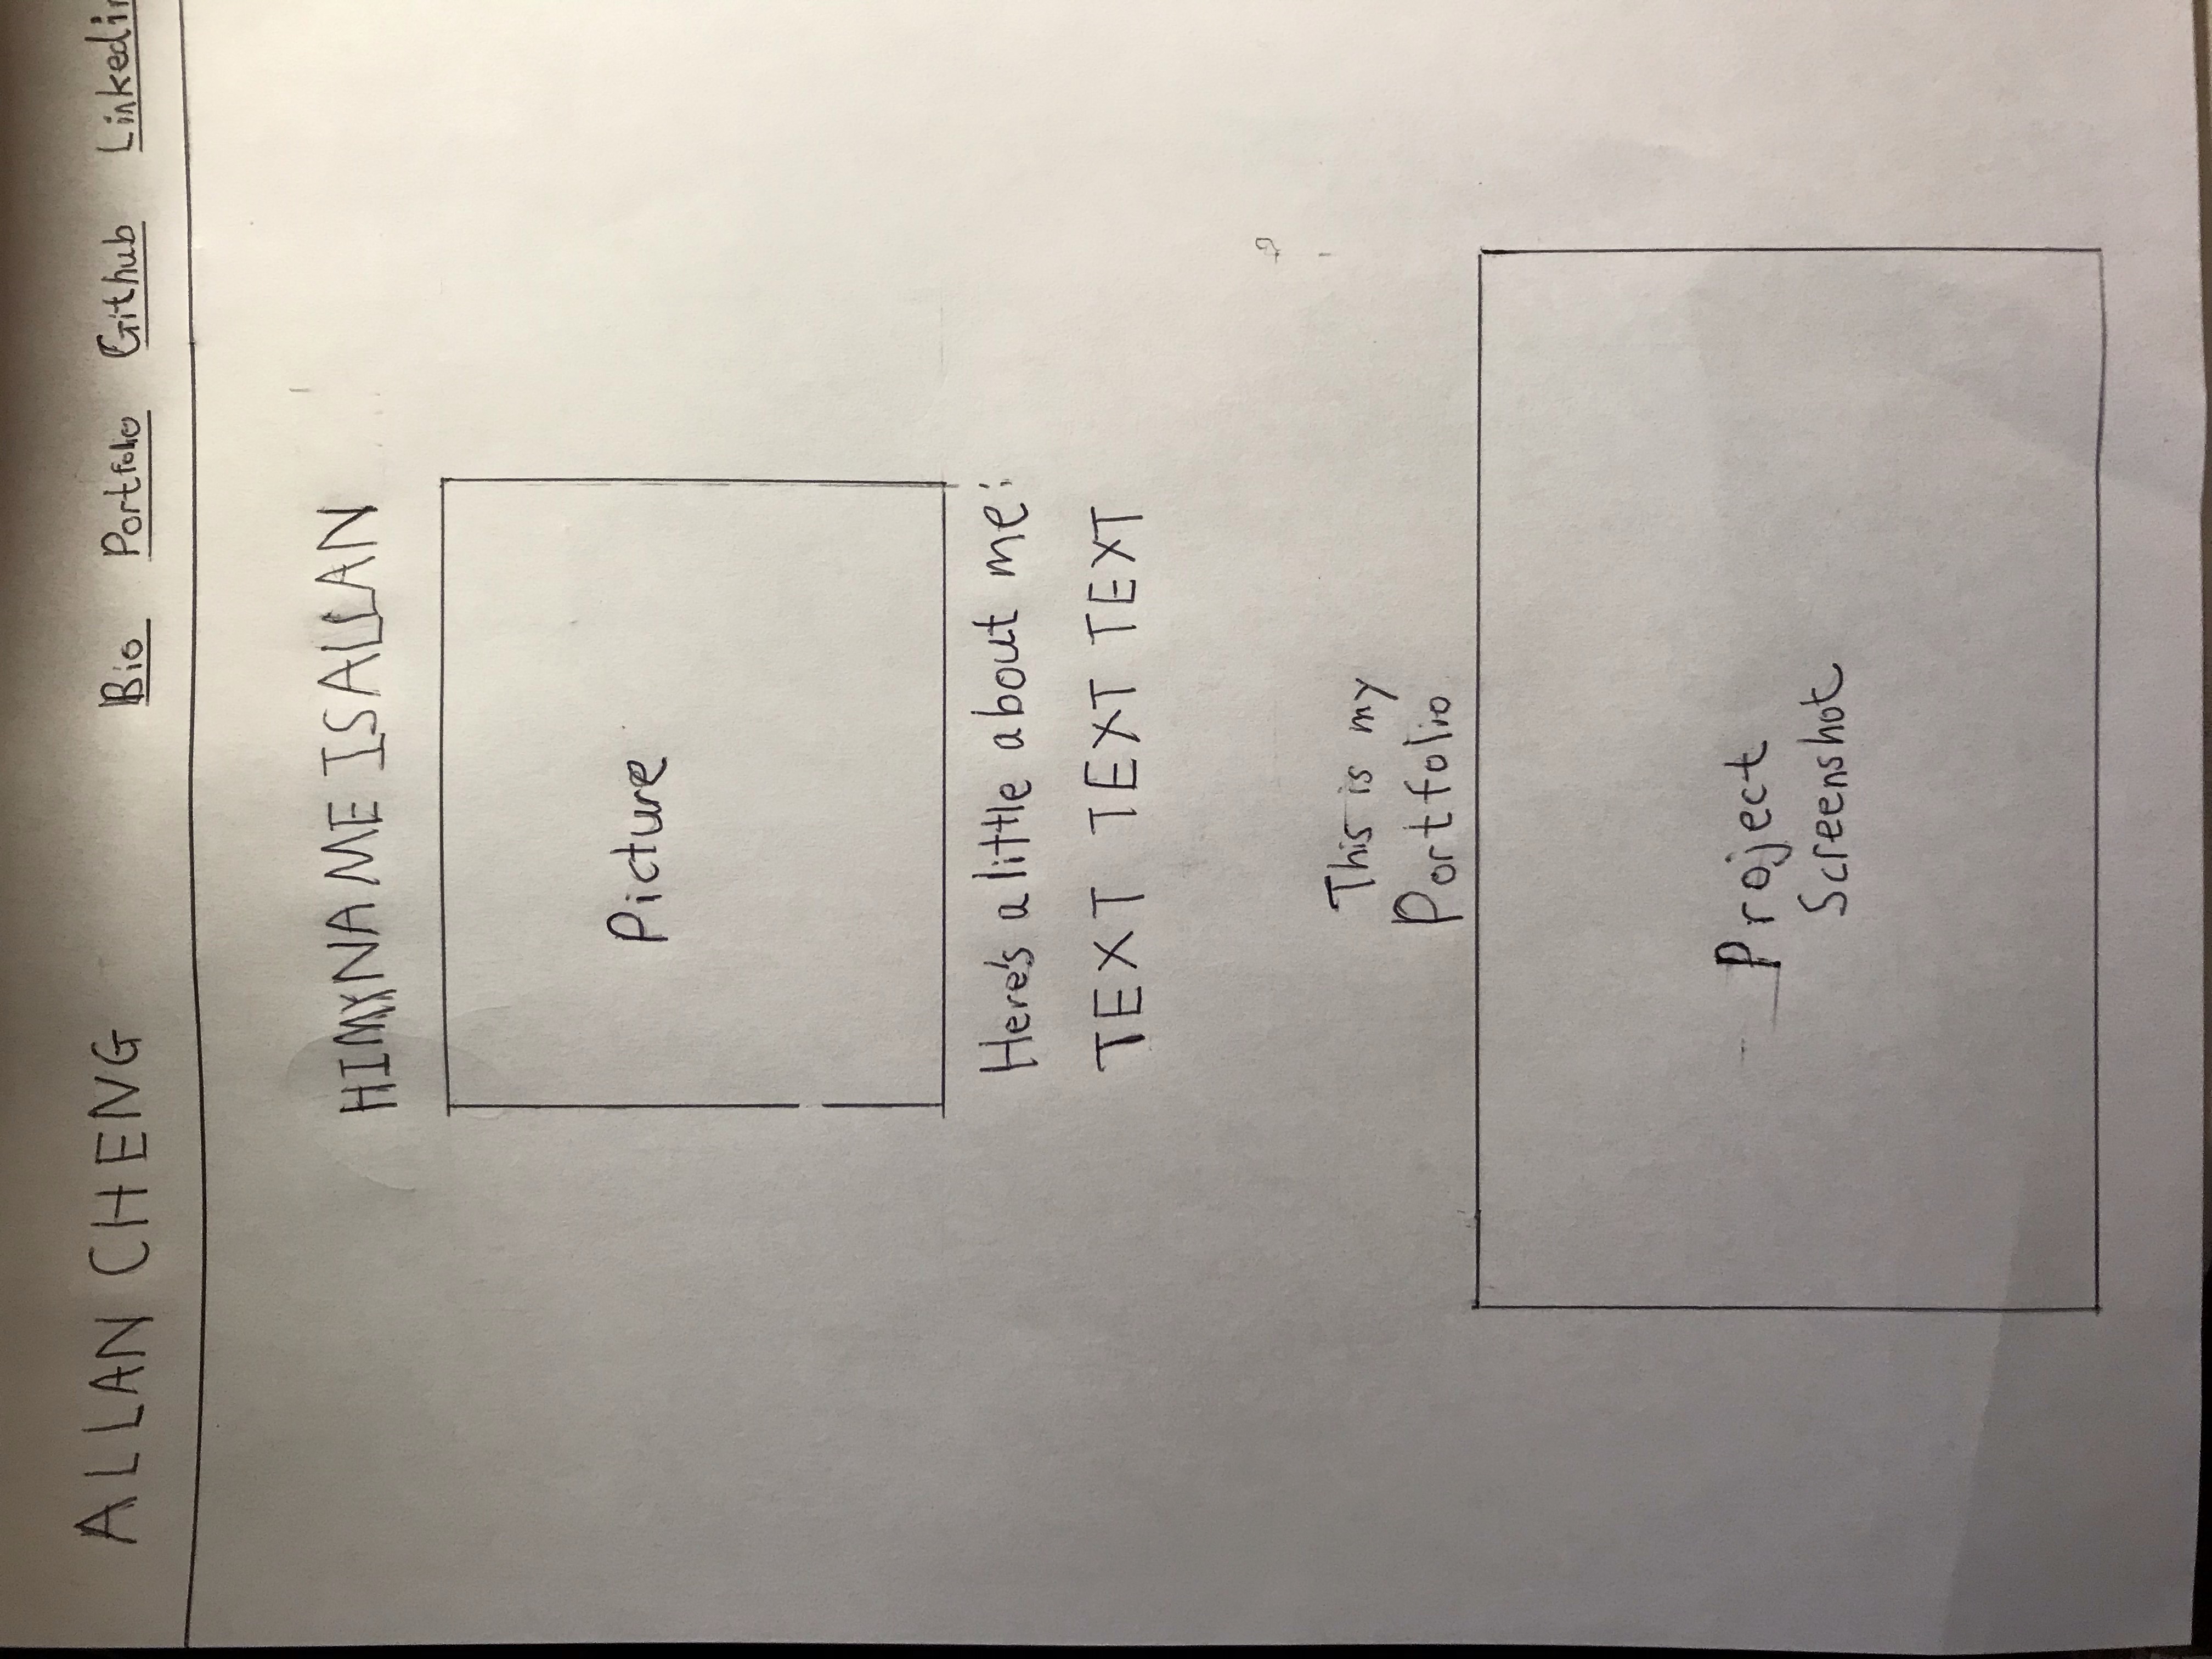 ALLAN CHENG Bio Portfolio Github Linkedin
HI MY NAME IS ALLAN
Picture
Here's a little about me:
TEXT TEXT TEXT
This is my
Portfolio
Project
Screenshot